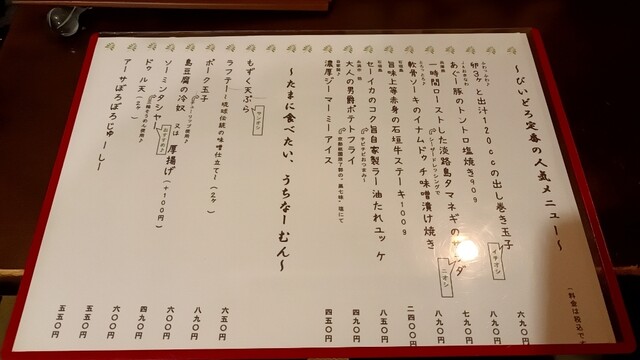 ～びいどろ定番の人気メニュー～
（料金は税込です
卵3ヶと出汁120ccの出し巻き玉子 六九〇円
イチオシ
あぐー豚のトントロ塩焼き90g 八九〇円
一時間ローストした淡路島タマネギのサラダ 七九〇円
シーザードレッシングで
ニオシ
軟骨ソーキのイナムドゥチ味噌漬け焼き 八九〇円
石垣島
旨味上等赤身の石垣牛ステーキ100g 二四〇〇円
セーイカのコク旨自家製ラー油たれユッケ 八五〇円
大人の男爵ポテトフライ 五九〇円
濃厚ジーマーミーアイス 四五〇円
～たまに食べたい、うちなーむん～
もずく天ぷら 六五〇円
ラフテー 琉球伝統の味噌仕立て！（2ヶ） 八九〇円
ポーク玉子 六〇〇円
島豆腐の冷奴 又は 厚揚げ（＋100円） 四九〇円
ソーミンタシャー 六〇〇円
ドゥル天（2ヶ） 五五〇円
アーサぽろぽろじゅーしー 五五〇円